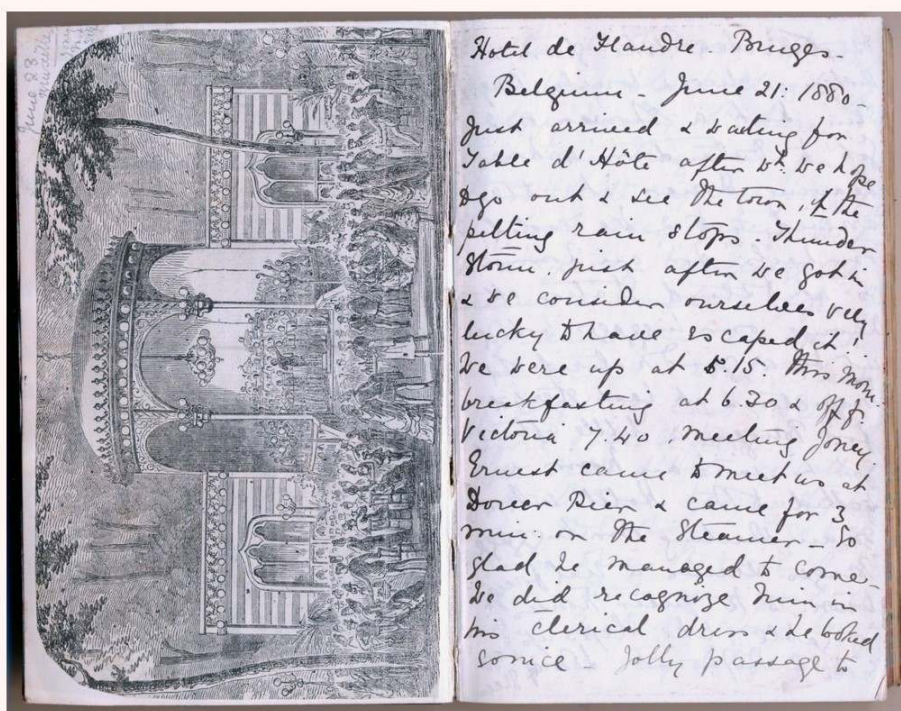 June 23.
Hotel de Flandre. Bruges -
Belgium - June 21: 1880 -
Just arrived & waiting for
Table d'Hôte after wh. we hope
to go out & see the town, if the
pelting rain stops. Thunder
storm, just after we got in
& we consider ourselves very
lucky to have escaped it!
We were up at 5.15. this morn.
breakfasting at 6.30 & off f.
Victoria 7.40. meeting Joney
Ernest came to meet us at
Dover Pier & came for 3
min: on the Steamer - So
glad he managed to come -
We did recognize him in
his clerical dress & he looked
so nice - Jolly passage to